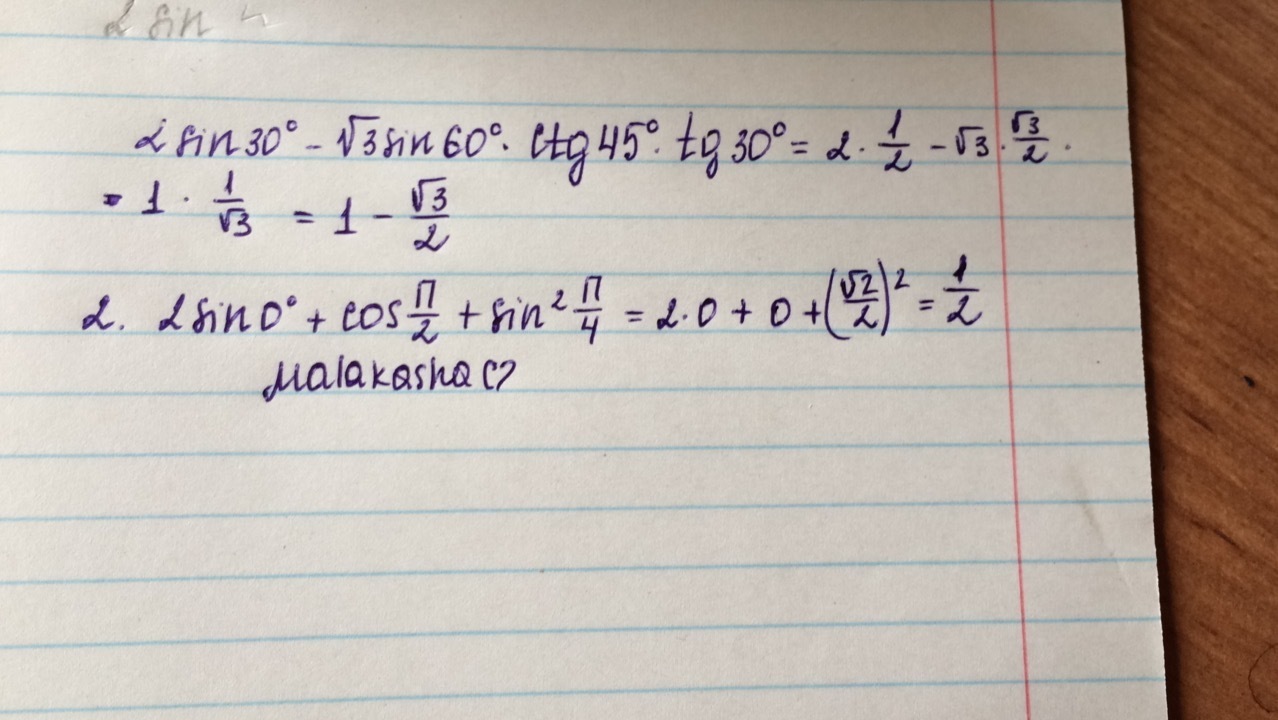 2 sin
2 sin 30° - √3 sin 60° · ctg 45° · tg 30° = 2 · 1/2 - √3 · √3/2 ·
· 1 · 1/√3 = 1 - √3/2
2. 2 sin 0° + cos π/2 + sin² π/4 = 2·0 + 0 + (√2/2)² = 1/2
Malakasha